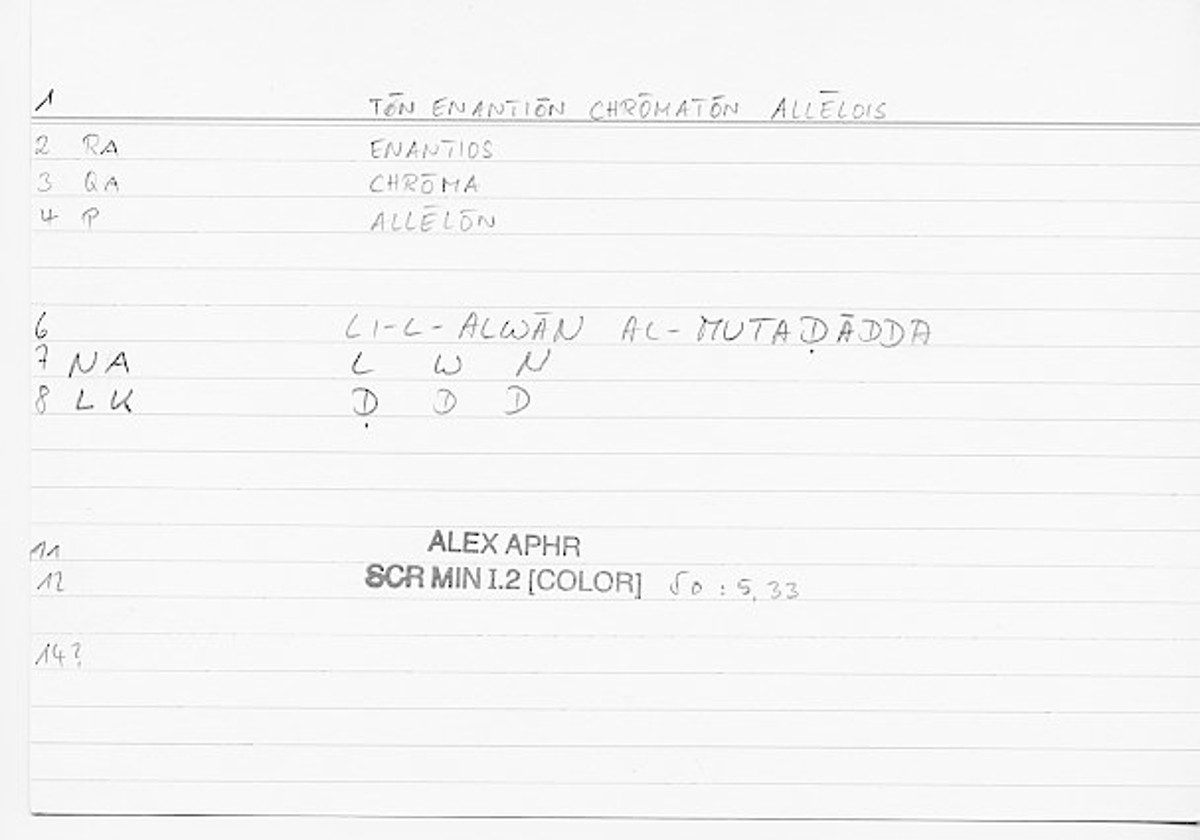 1 TŌN ENANTIŌN CHRŌMATŌN ALLĒLOIS
2 RA ENANTIOS
3 QA CHRŌMA
4 P ALLĒLŌN
6 LI-L-ALWĀN AL-MUTAḌĀDDA
7 NA L W N
8 LK Ḍ D D
11 ALEX APHR
12 SCR MIN I.2 [COLOR] 50 : 5, 33
14?